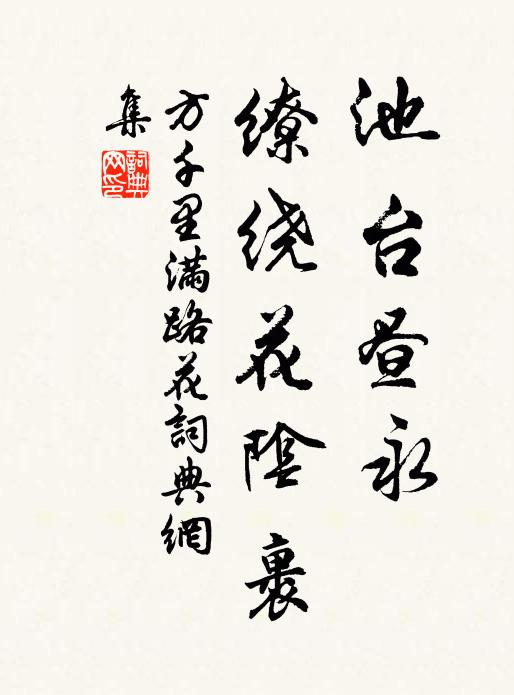 池台昼永
缭绕花阴裹
方千里满路花詞典網
集
詞典网印